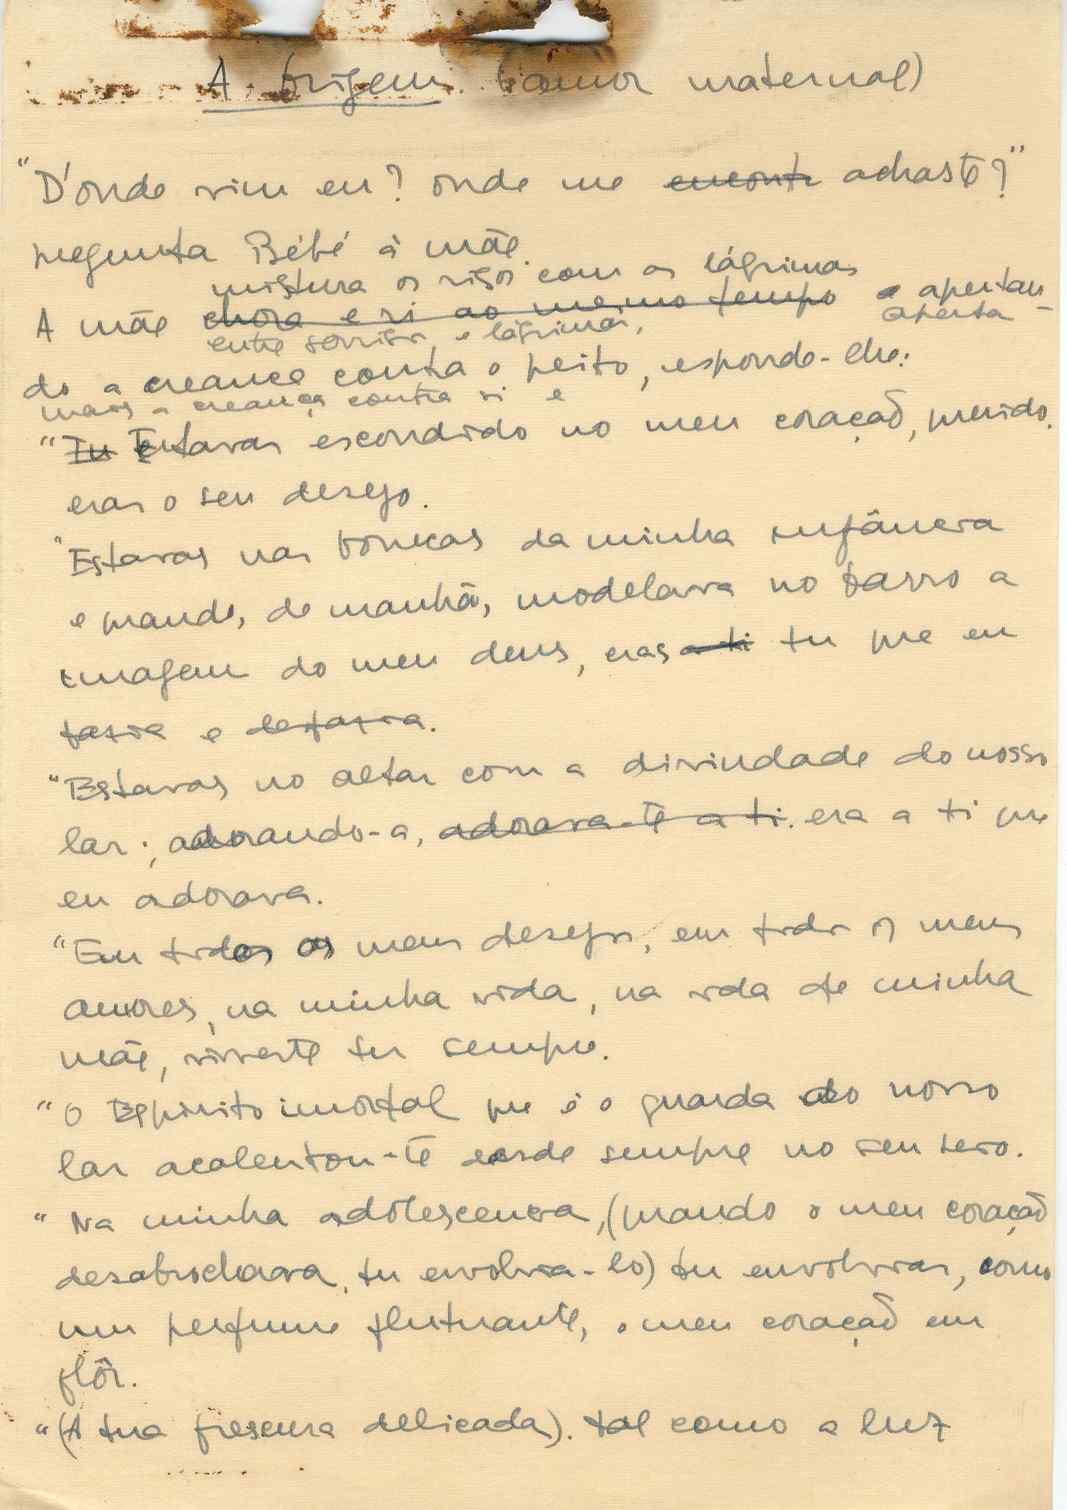 A Origem. (amor maternal)
"D'onde vim eu? onde me encont achaste?"
pregunta Bébé à mãe.
mistura os risos com as lágrimas
A mãe chora e ri ao mesmo tempo e apertan-
entre sorrisos e lágrimas, aperta
do a creança contra o peito, responde-lhe:
mais a creança contra si e
"Tu Estavas escondido no meu coração, querido,
eras o seu desejo.
"Estavas nas bonecas da minha infância
e quando, de manhã, modelava no barro a
imagem do meu deus, eras a ti tu que eu
fazia e desfazia.
"Estavas no altar com a divindade do nosso
lar; adorando-a, adorava-te a ti. era a ti que
eu adorava.
"Em todos os meus desejos, em todos os meus
amores, na minha vida, na vida de minha
mãe, viveste tu sempre.
"O Espirito imortal que é o guarda do nosso
lar acalentou-te desde sempre no seu seio.
"Na minha adolescencia, (quando o meu coração
desabrochava, tu envolvia-lo) tu envolvias, como
um perfume flutuante, o meu coração em
flôr.
"(A tua frescura delicada). tal como a luz